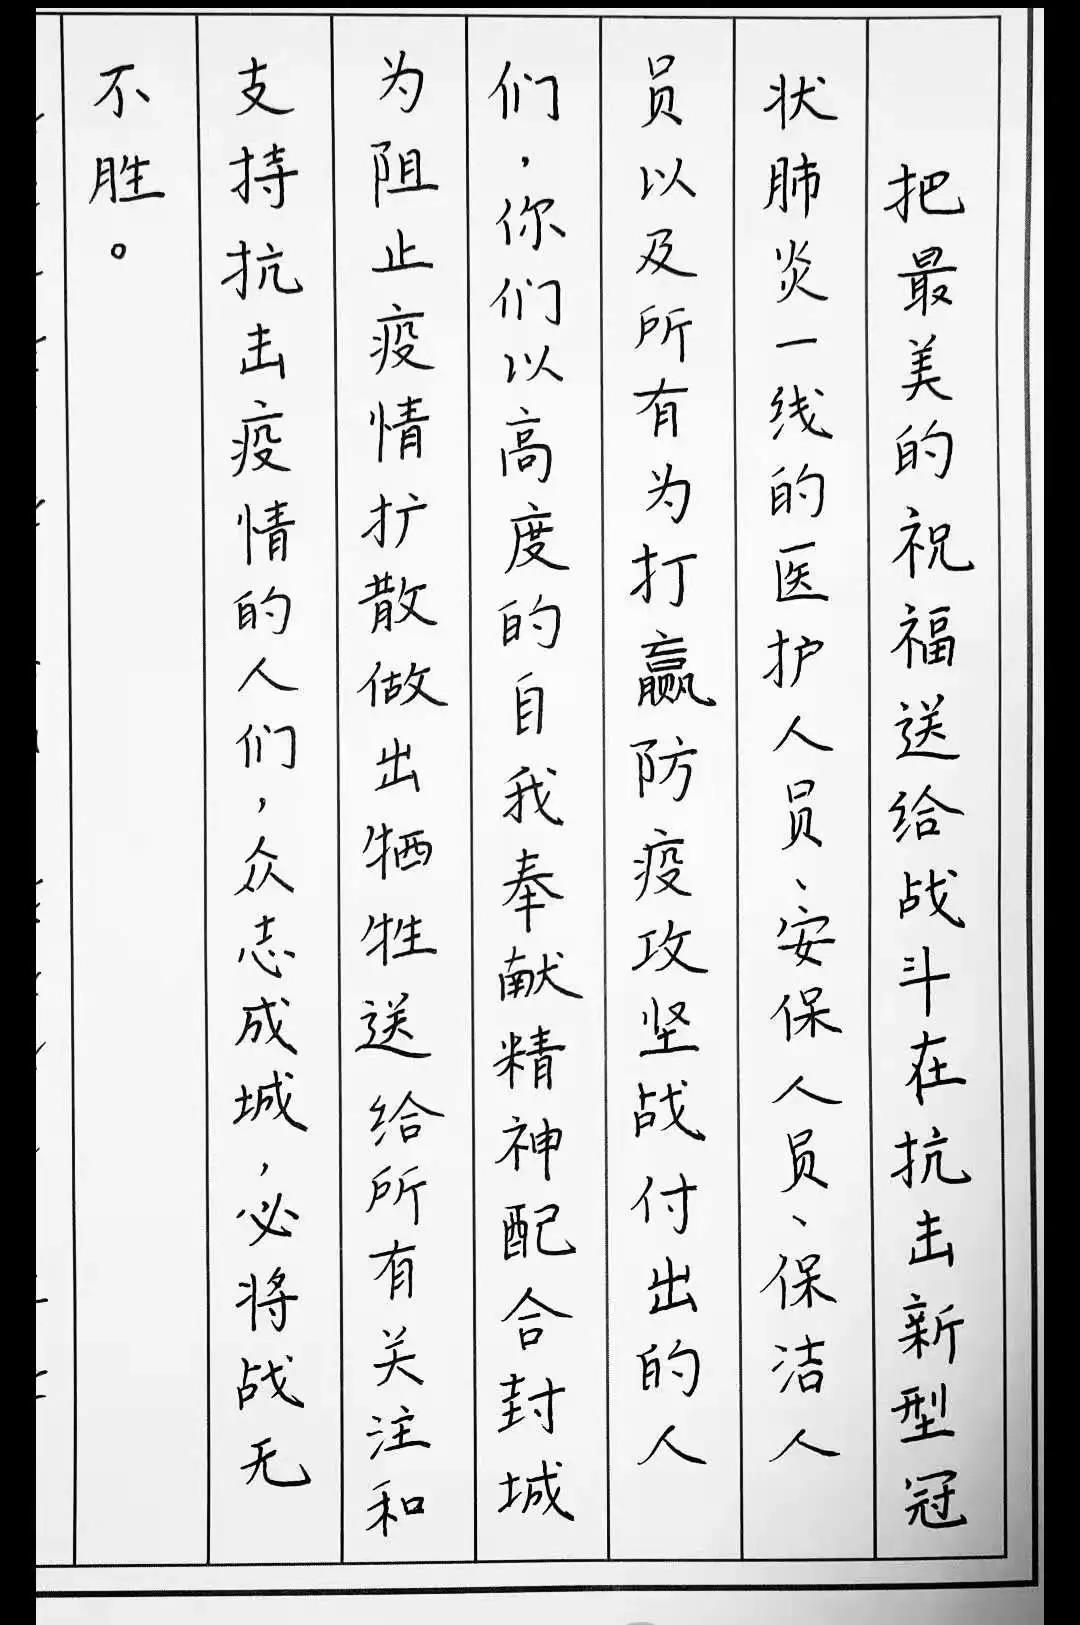 把最美的祝福送给战斗在抗击新型冠
状肺炎一线的医护人员、安保人员、保洁人
员以及所有为打赢防疫攻坚战付出的人
们，你们以高度的自我奉献精神配合封城
为阻止疫情扩散做出牺牲送给所有关注和
支持抗击疫情的人们，众志成城，必将战无
不胜。